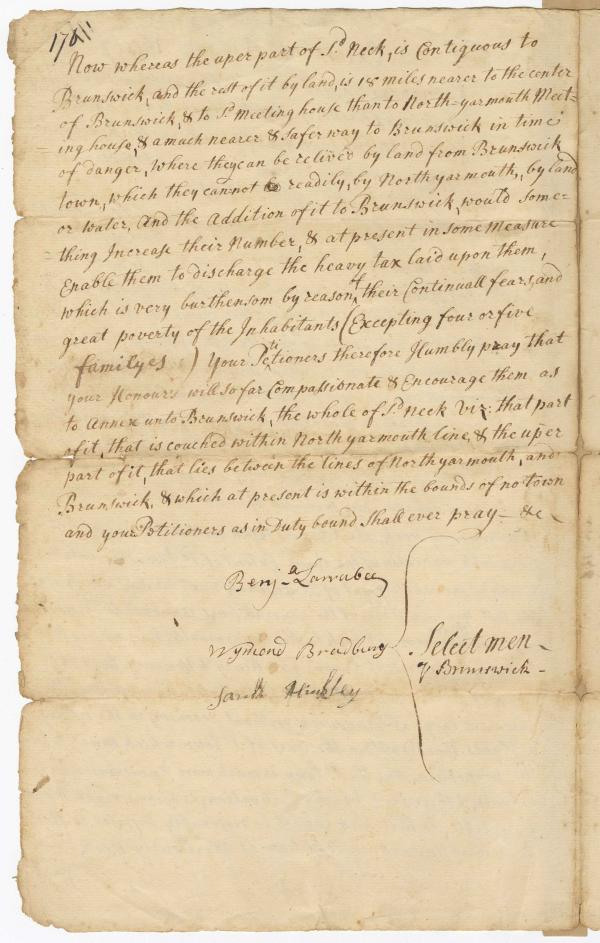 Now whereas the uper part of Sd Neck, is Contiguous to
Brunswick, and the rest of it by land, is 18 miles nearer to the center
of Brunswick, & to Sd meeting house than to North=yarmouth Meet=
=ing house, & a much nearer & Safer way to Brunswick in time
of danger, where they can be relived by land from Brunswick
town, which they cannot be readily, by North yarmouth, by land
or water, And the addition of it to Brunswick, would Some=
=thing Increase their Number, & at present in some Measure
Enable them to discharge the heavy tax laid upon them,
which is very burthensom by reason of their Continuall fears, and
great poverty of the Inhabitants (Excepting four or five
familyes ) Your Petitioners therefore Humbly pray that
your Honours will so far Compassionate & Encourage them as
to Annex unto Brunswick, the whole of Sd Neck viz: that part
of it, that is couched within North yarmouth line, & the uper
part of it, that lies between the lines of North yarmouth, and
Brunswick, & which at present is within the bounds of no town
and your Petitioners as in Duty bound Shall ever pray - &c
Benja Larrabee
Wymond Bradbury
Select men
of Brunswick
Hinkley